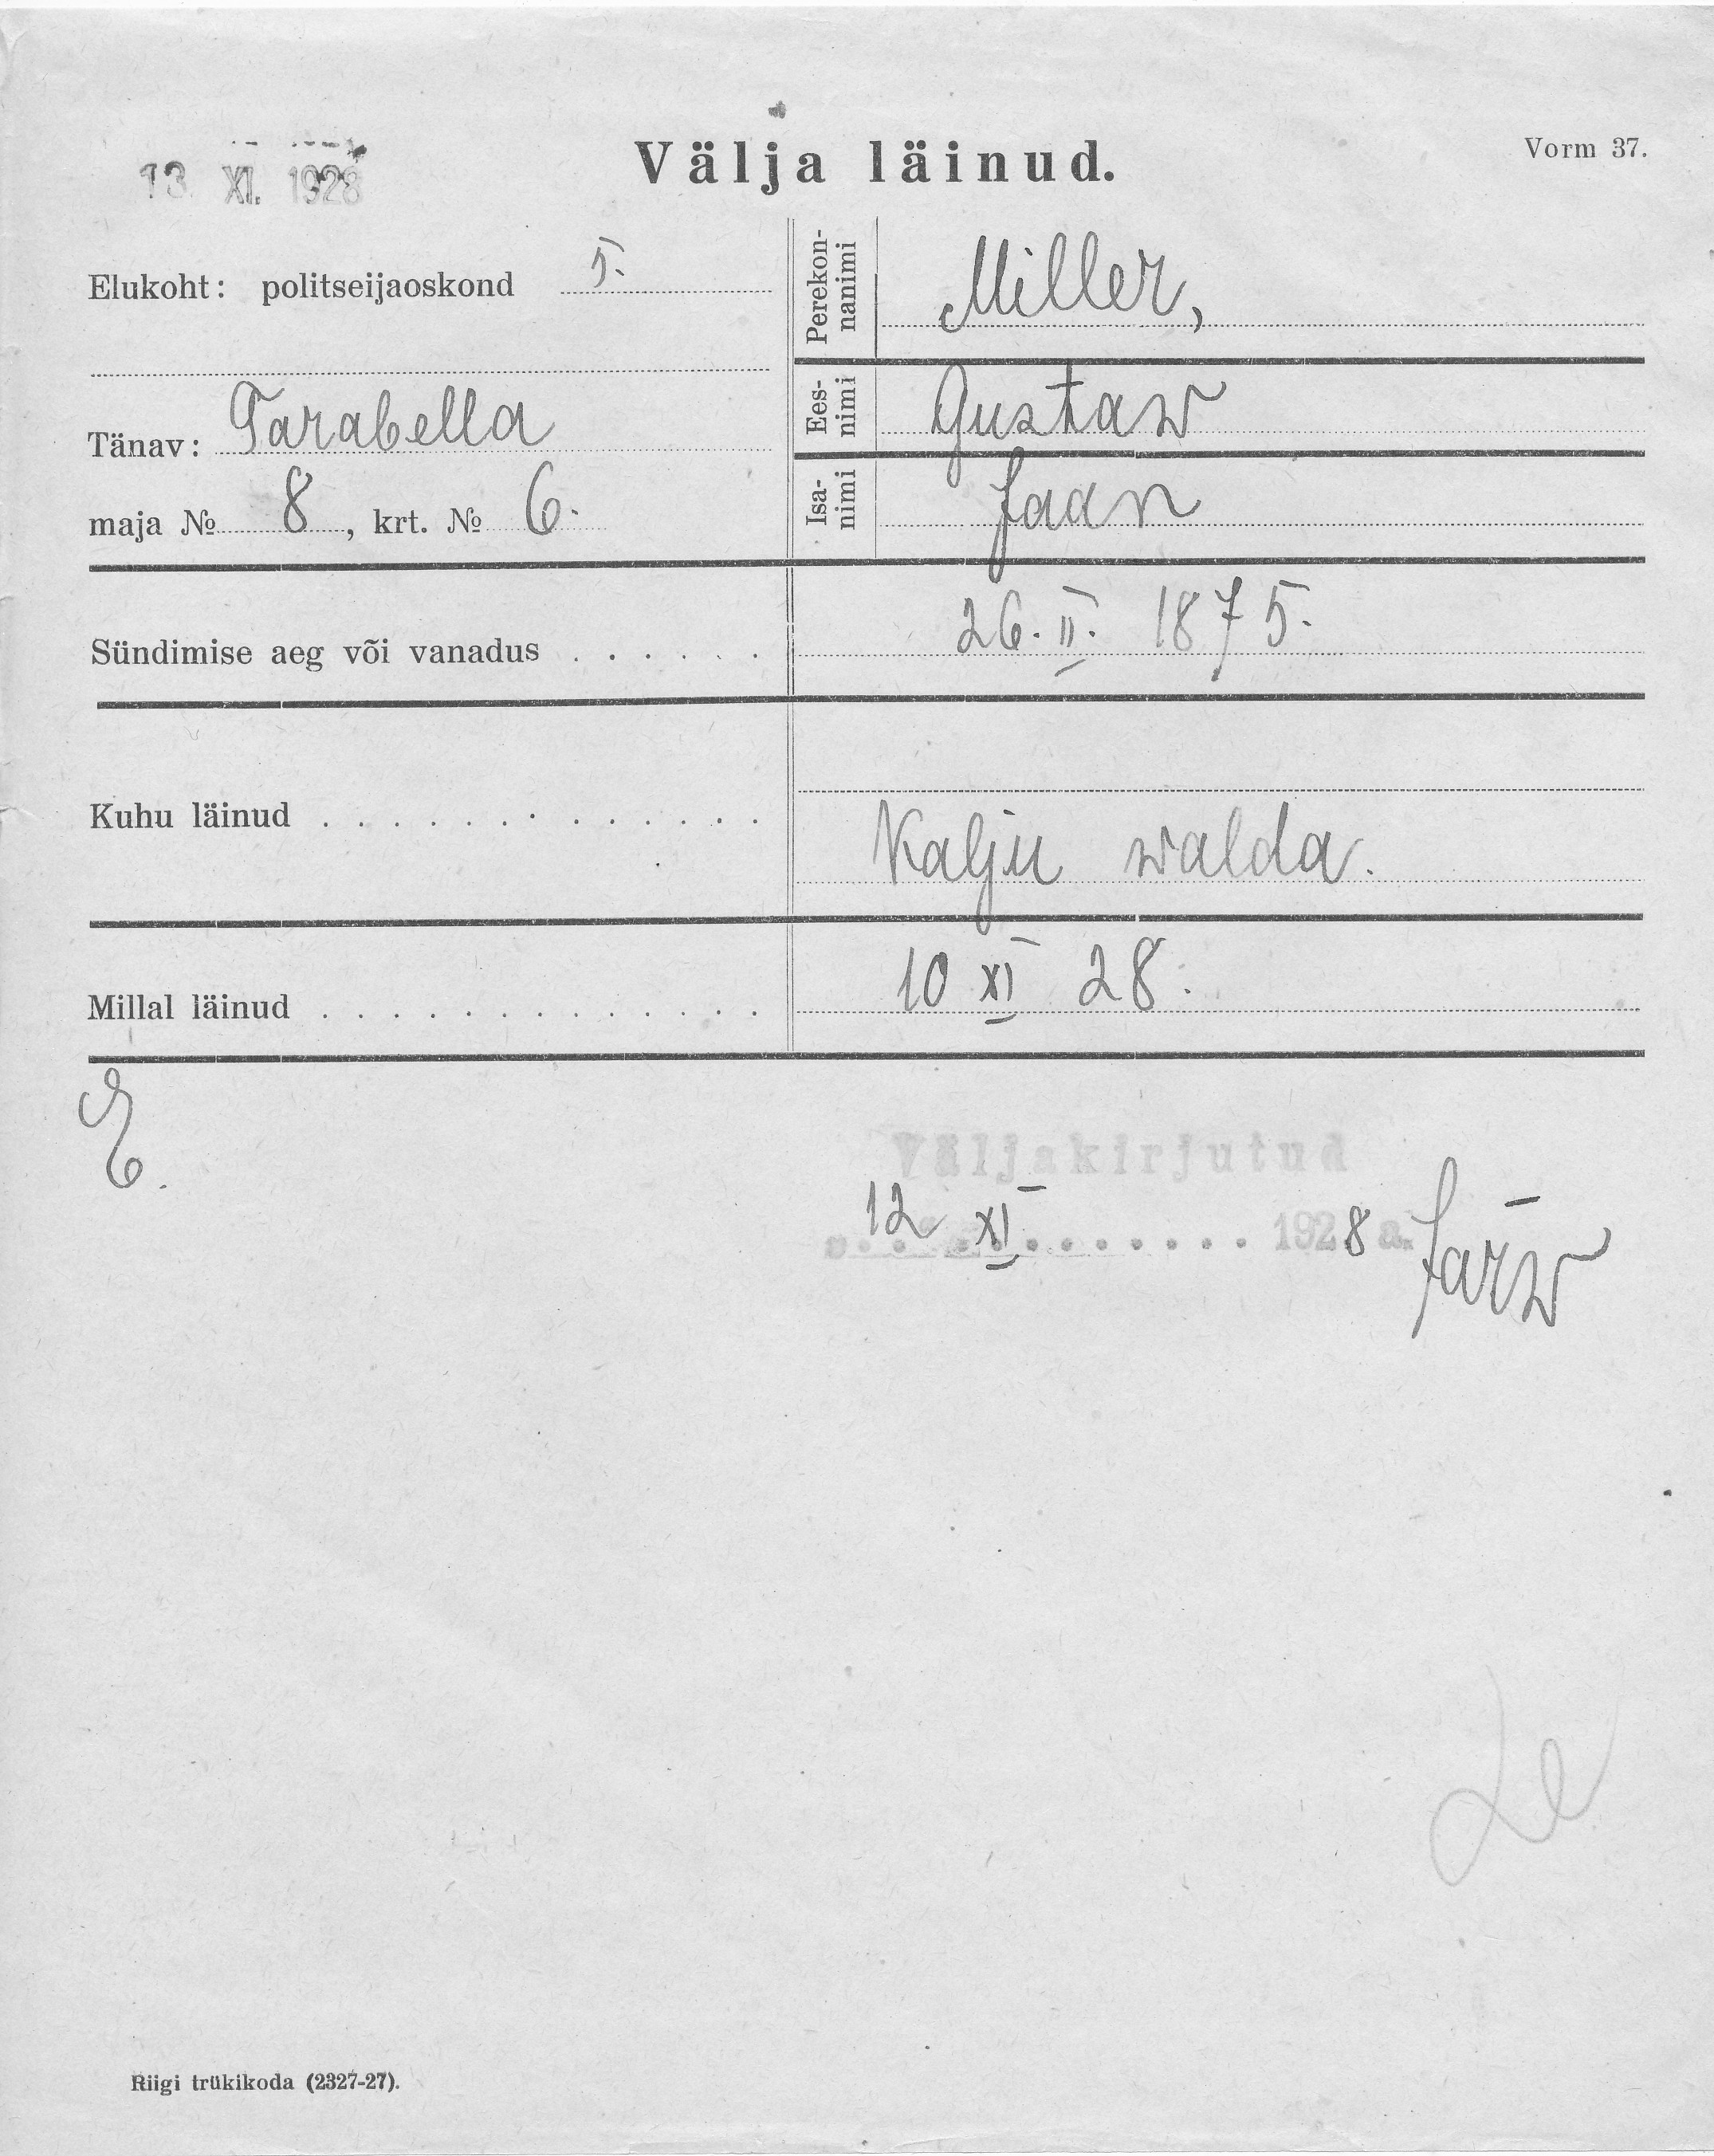 13. XI. 1928
Välja läinud.
Vorm 37.
Elukoht: politseijaoskond 5.
Perekon-
nanimi
Miller,
Tänav: Parabella
Ees-
nimi
Gustaw
maja № 8, krt. № 6.
Isa-
nimi
Jaan
Sündimise aeg või vanadus . . . . . . 26. II. 1875.
Kuhu läinud . . . . . . . . . . . . . Kalju walda.
Millal läinud . . . . . . . . . . . . . 10 XI 28.
Väljakirjutud
12 XI 1928 a. Järw
Riigi trükikoda (2327-27).